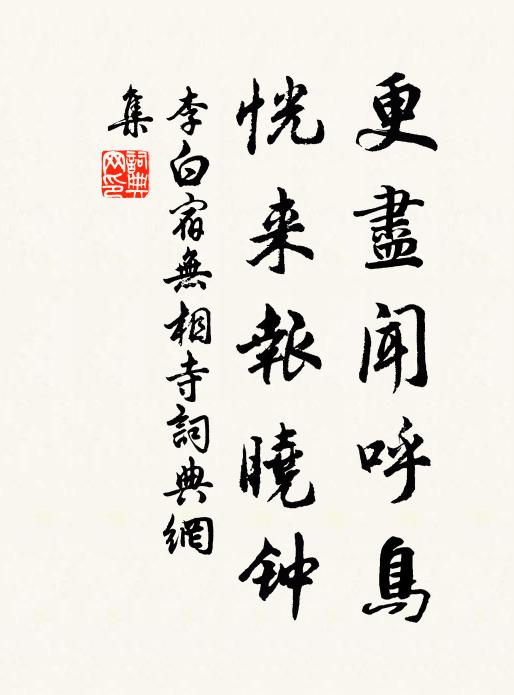 更盡聞呼鳥
恍来報曉钟
李白宿無相寺詞典網
集
詞典
网印